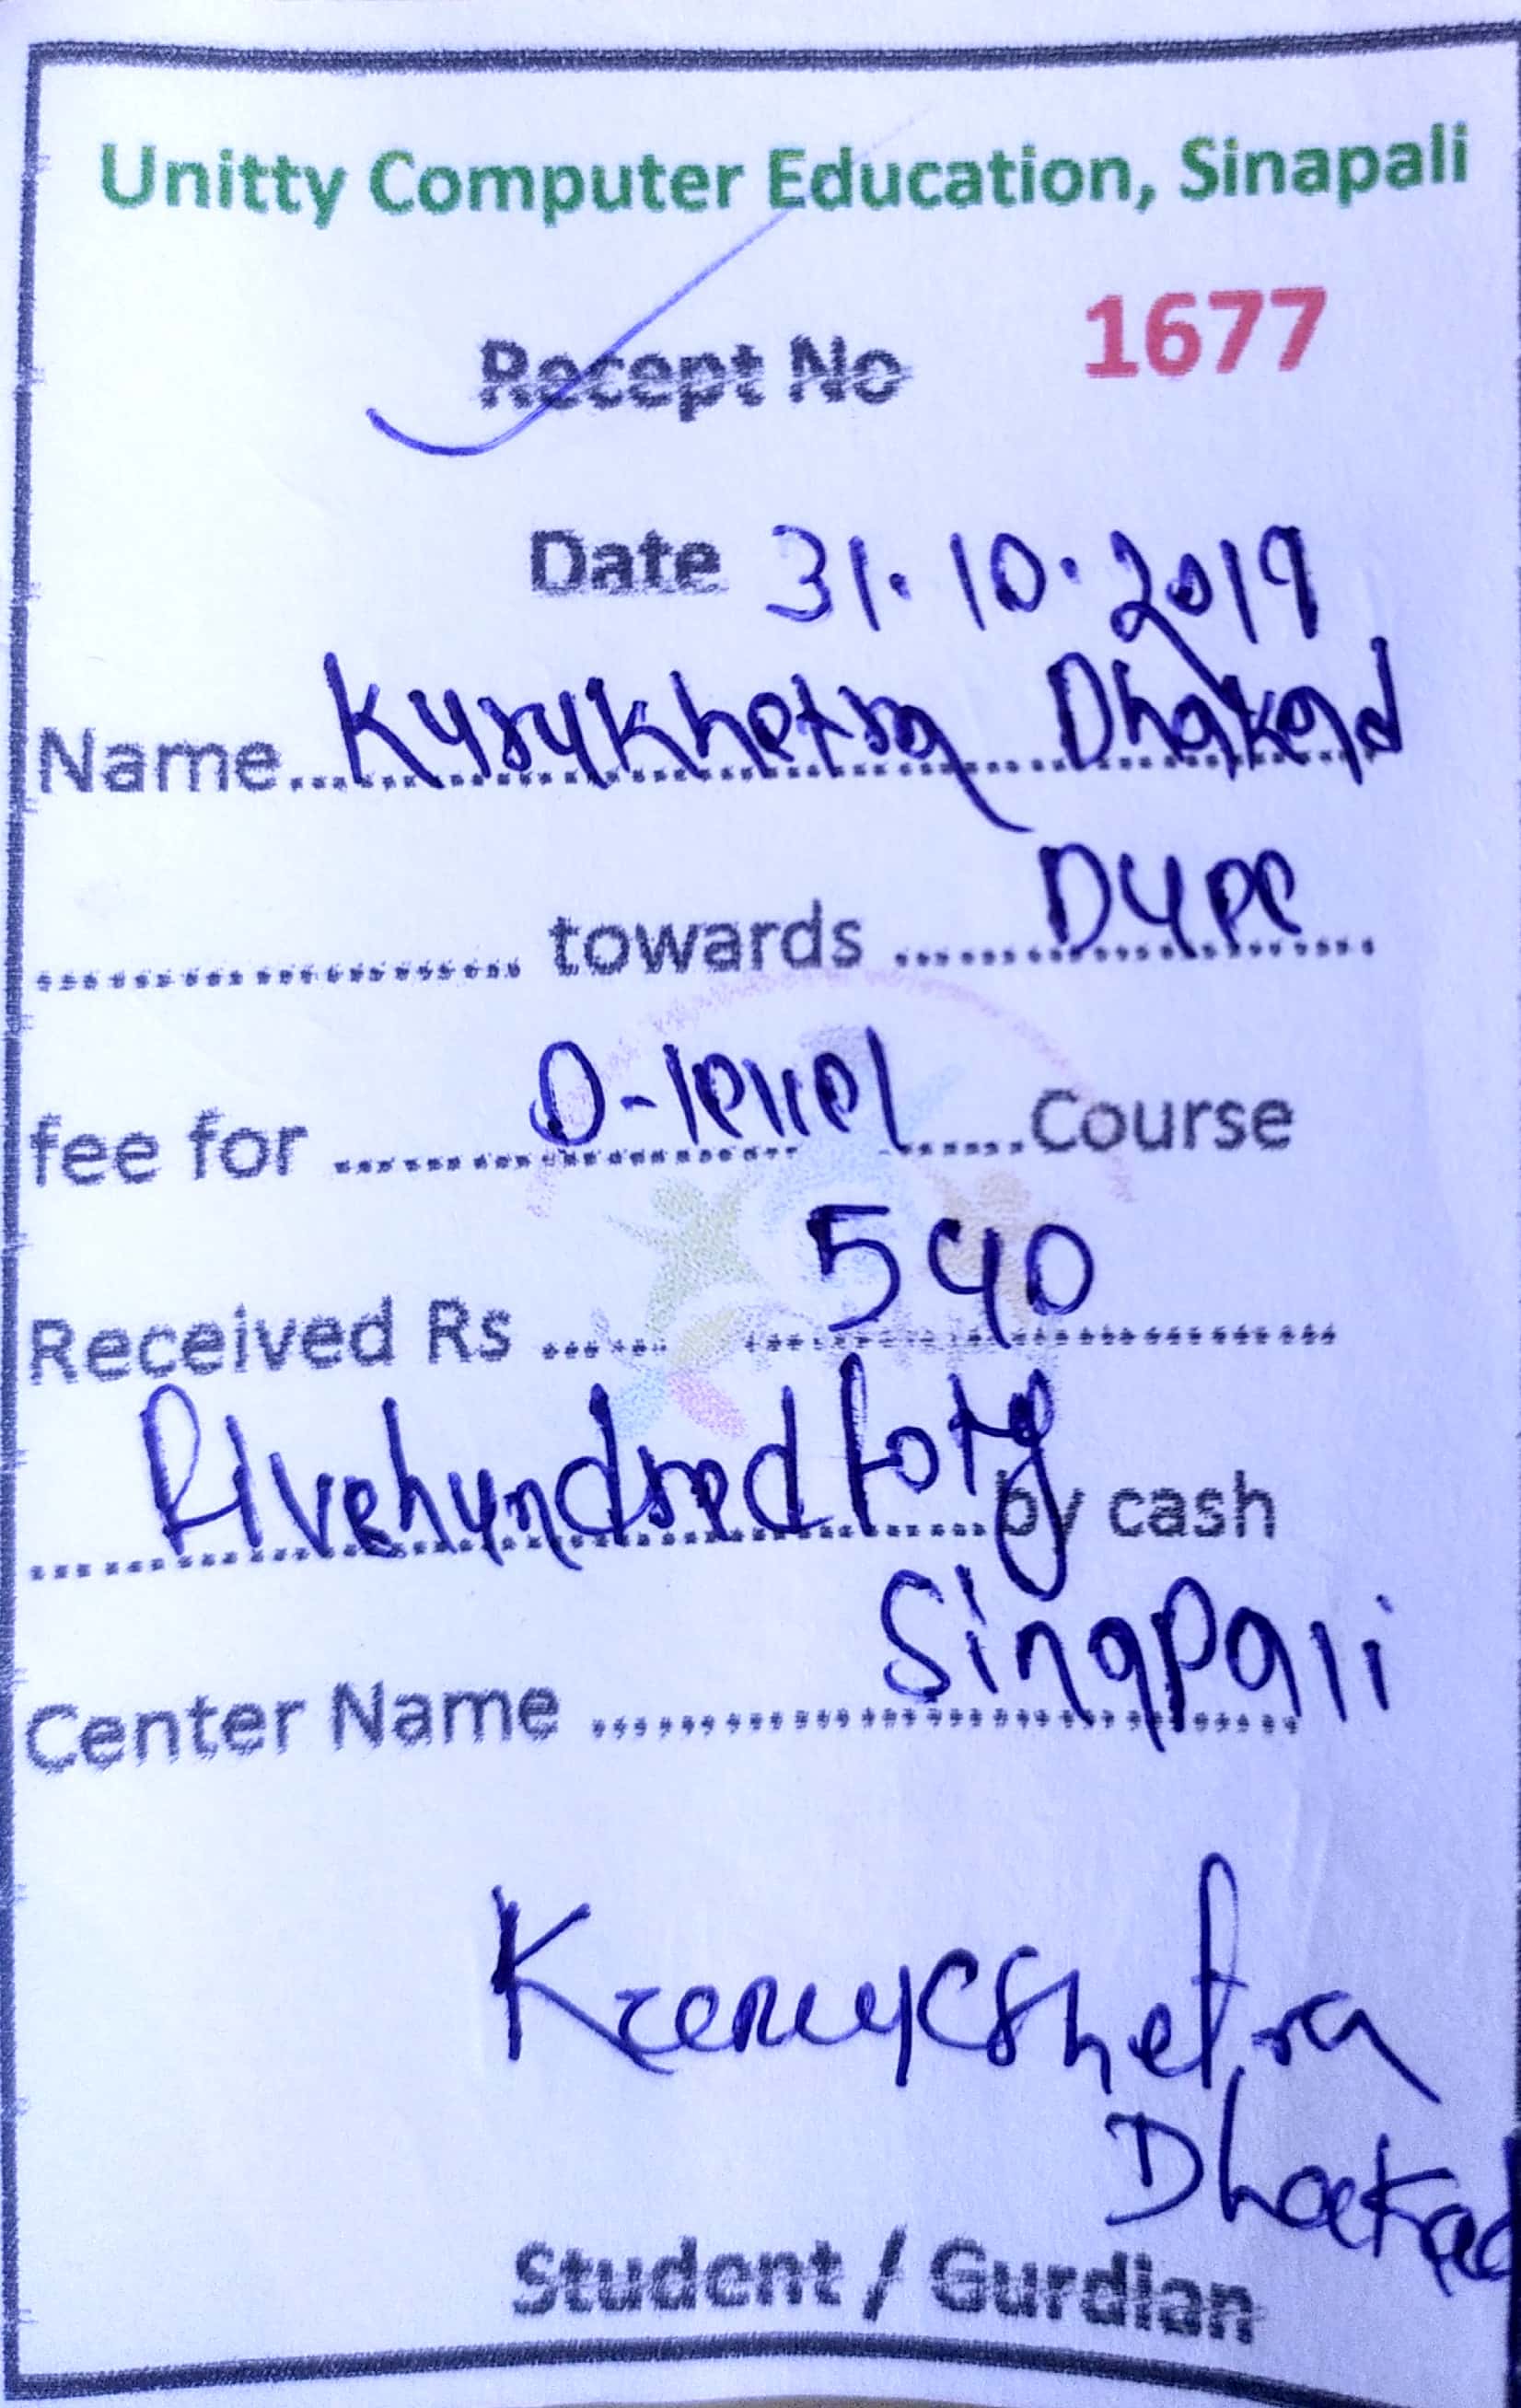 Unitty Computer Education, Sinapali
Recept No 1677
Date 31.10.2019
Name Kurukhetra Dhakad
towards Duee
fee for O-level Course
Received Rs 540
Fivehundred foty by cash
Center Name Sinapali
Kurukshetra
Dhakad
Student / Gurdian